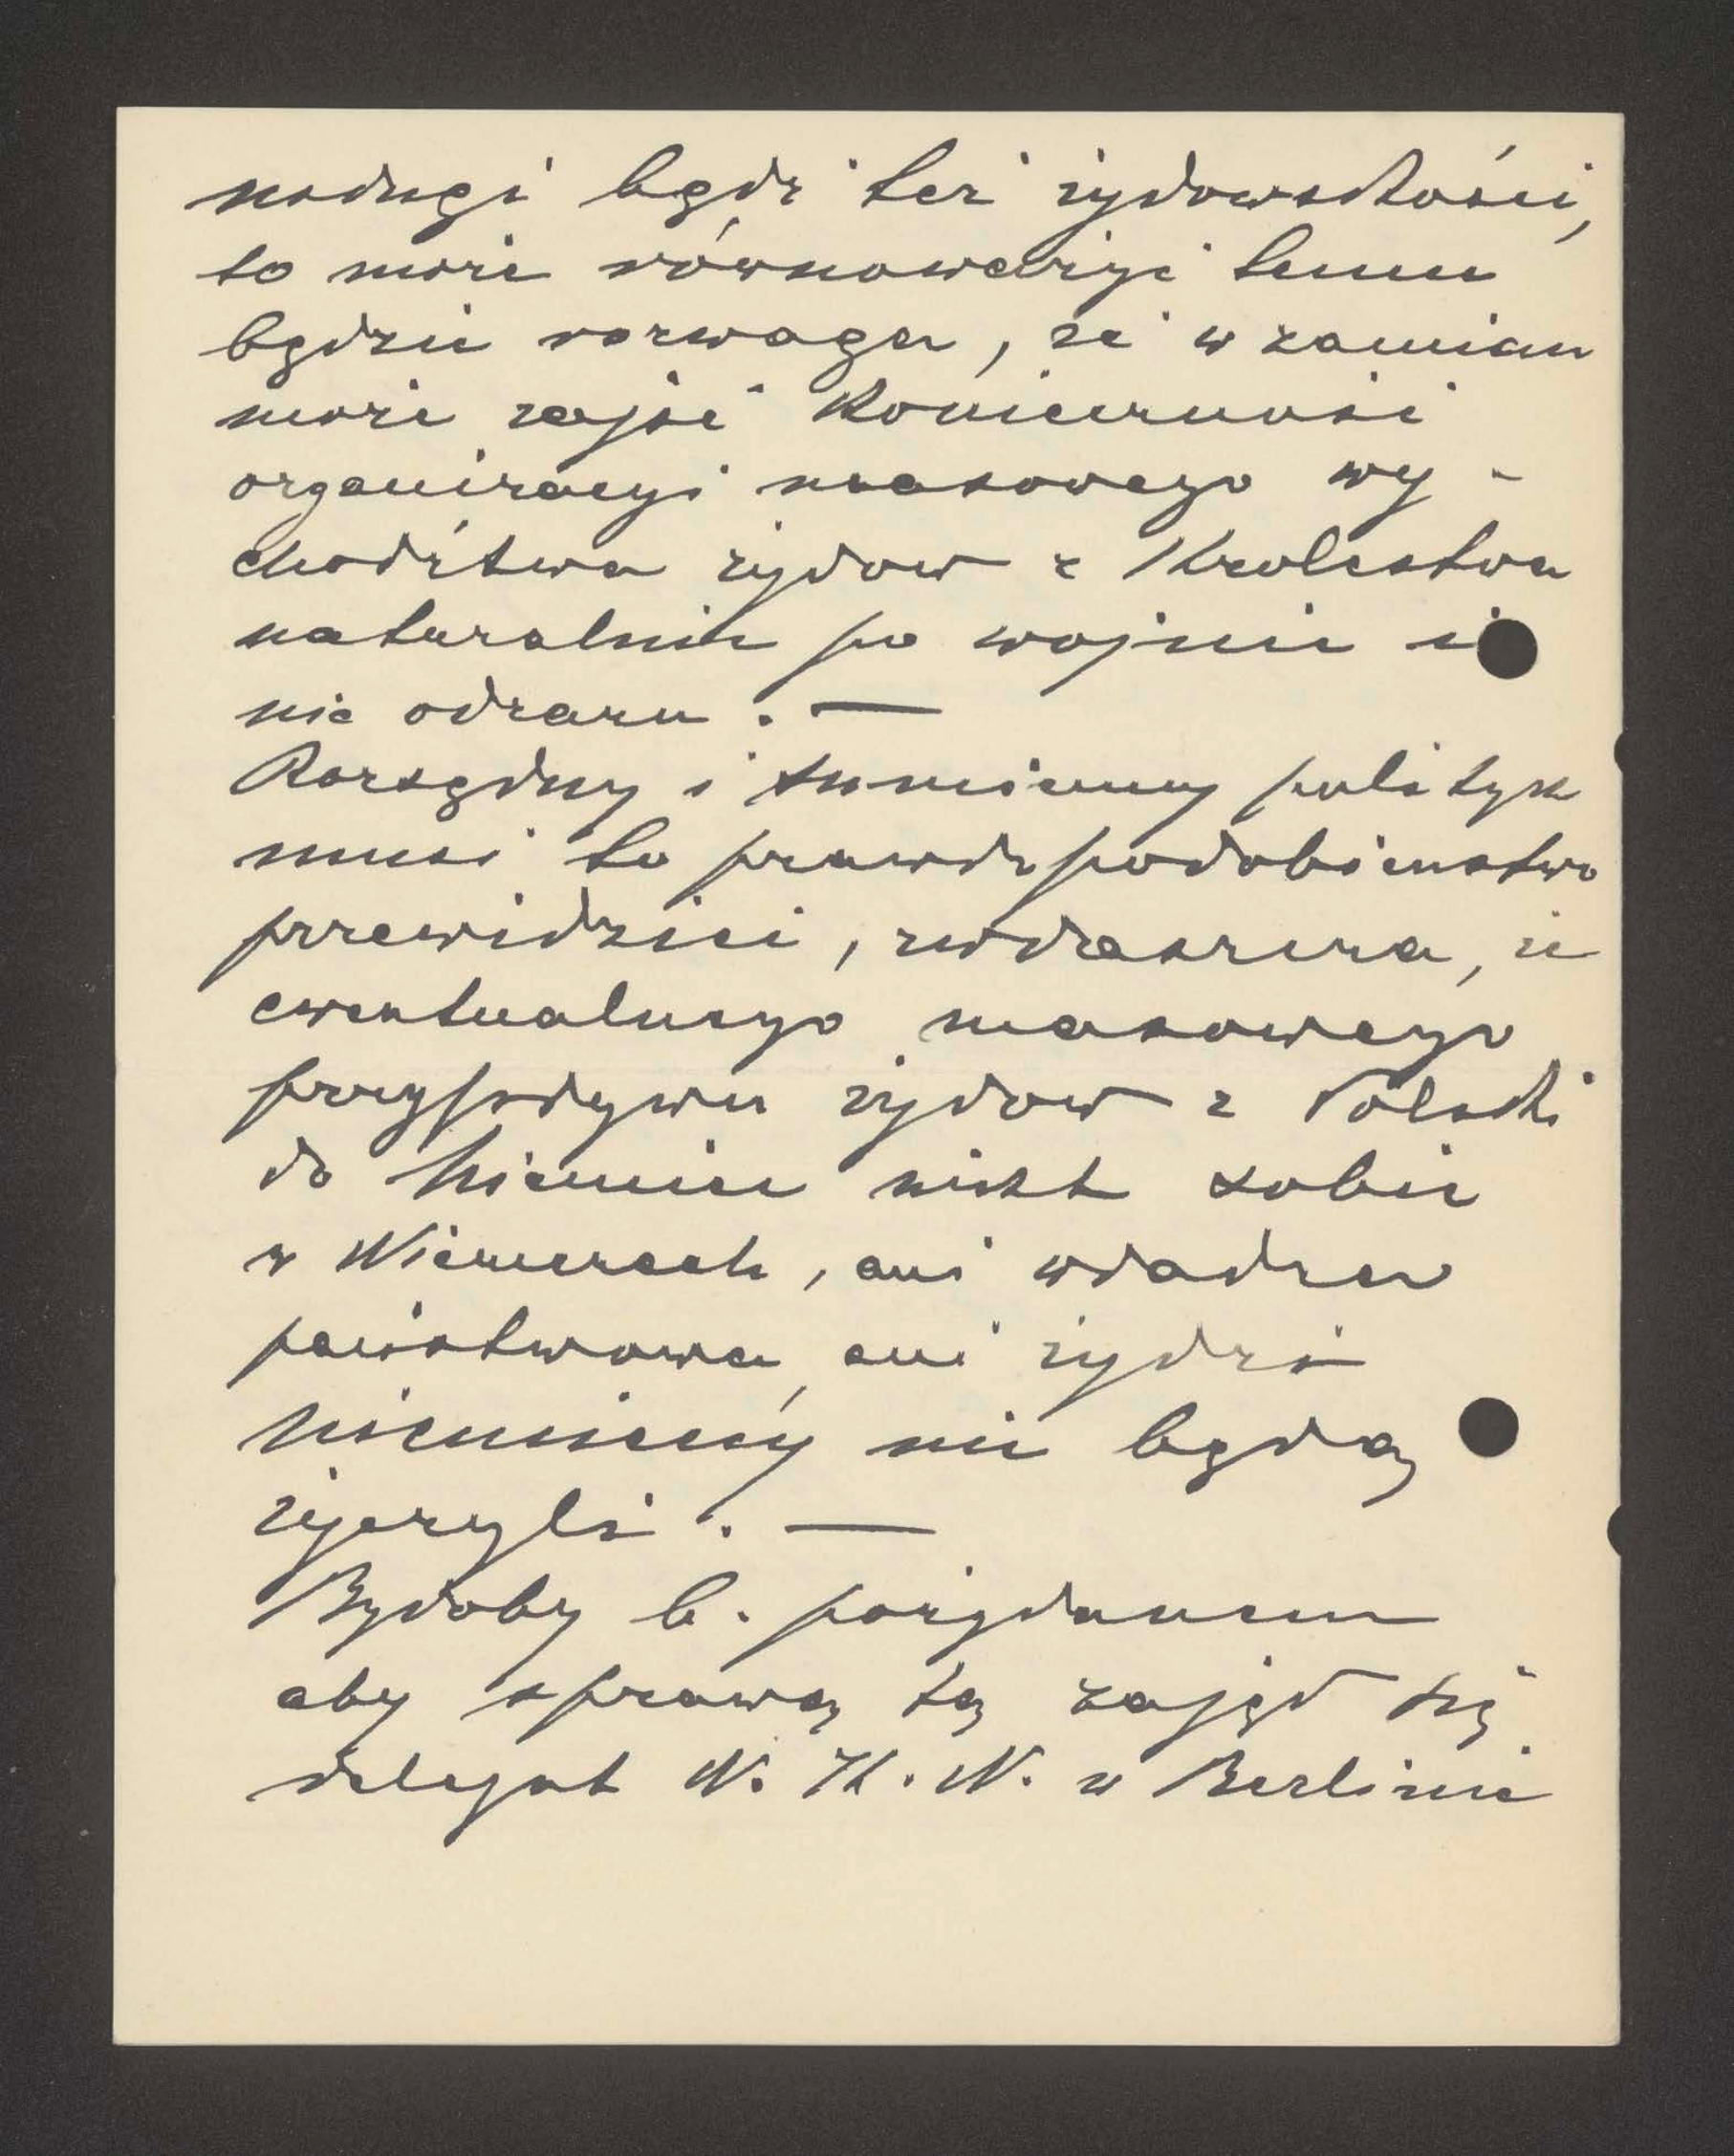 usługi bądź też żydowskości,
to może równoważyć temu
będzie rozwaga, że w zamian
może zajść konieczność
organizacyi masowego wy-
chodźtwa żydow z Krolestwa
naturalnie po wojnie i
nie odrazu. —
Rozsądny i sumienny polityk
musi to prawdopodobieństwo
przewidzieć, zwłaszcza, że
ewentualnego masowego
przypływu żydow z Polski
do Niemiec nikt sobie
w Niemczech, ani władza
państwowa, ani żydzi
niemieccy nie będą
życzyli. —
Byłoby b. pożądanem
aby sprawą tą zajął się
delegat N. K. N. w Berlinie